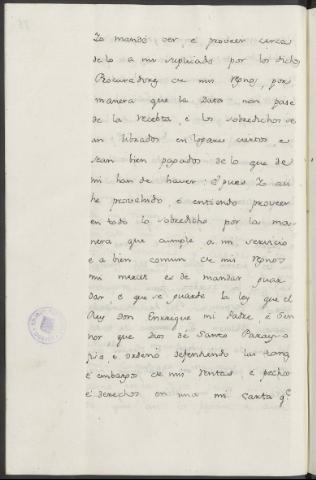 Lo mandó ver, é proveer cerca
de lo a mi suplicado por los dichos
Procuradores de mis Reynos, por
manera que la Data non pase
de la recebta, é los sobredichos se
an librados en logares ciertos, é
sean bien pagados de lo que de
mi han de haver: é pues Yo asi
he provehido, é entiendo proveer
en todo lo sobredicho por la ma
nera que cumple a mi servicio
é a bien comun de mis Reynos
mi merced es de mandar guar
dar, é que se guarde la ley que el
Rey Don Enrrique mi Padre, é Sen
nor que Dios dé Santo Parayso
fizo, é ordenó defendiendo las tomas
é embargos de mis rentas é pechos
é derechos en una mi Carta qe